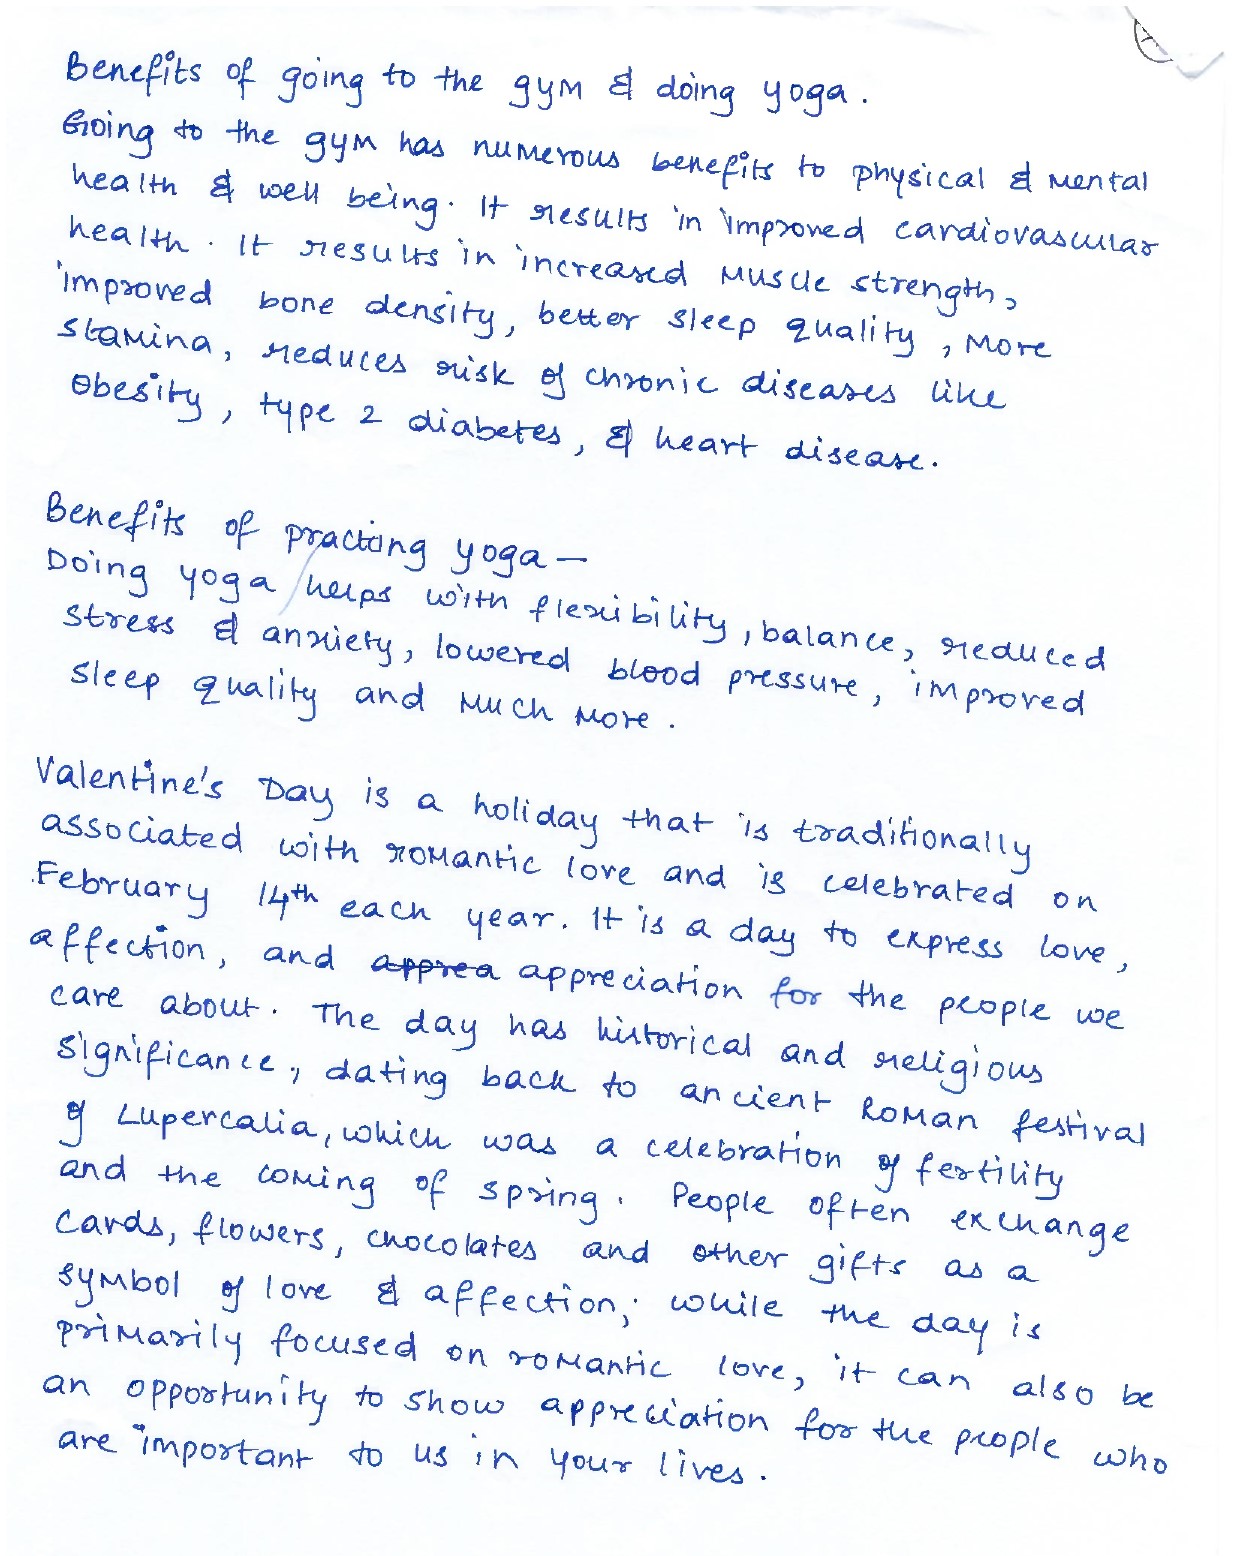 Benefits of going to the gym & doing yoga.
Going to the gym has numerous benefits to physical & mental
health & well being. It results in improved cardiovascular
health. It results in increased muscle strength,
improved bone density, better sleep quality, more
stamina, reduces risk of chronic diseases like
obesity, type 2 diabetes, & heart disease.
Benefits of practing yoga —
Doing yoga helps with flexibility, balance, reduced
stress & anxiety, lowered blood pressure, improved
sleep quality and much more.
Valentine's Day is a holiday that is traditionally
associated with romantic love and is celebrated on
February 14th each year. It is a day to express love,
affection, and apprea appreciation for the people we
care about. The day has historical and religious
significance, dating back to ancient Roman festival
of Lupercalia, which was a celebration of fertility
and the coming of spring. People often exchange
cards, flowers, chocolates and other gifts as a
symbol of love & affection; while the day is
primarily focused on romantic love, it can also be
an opportunity to show appreciation for the people who
are important to us in your lives.